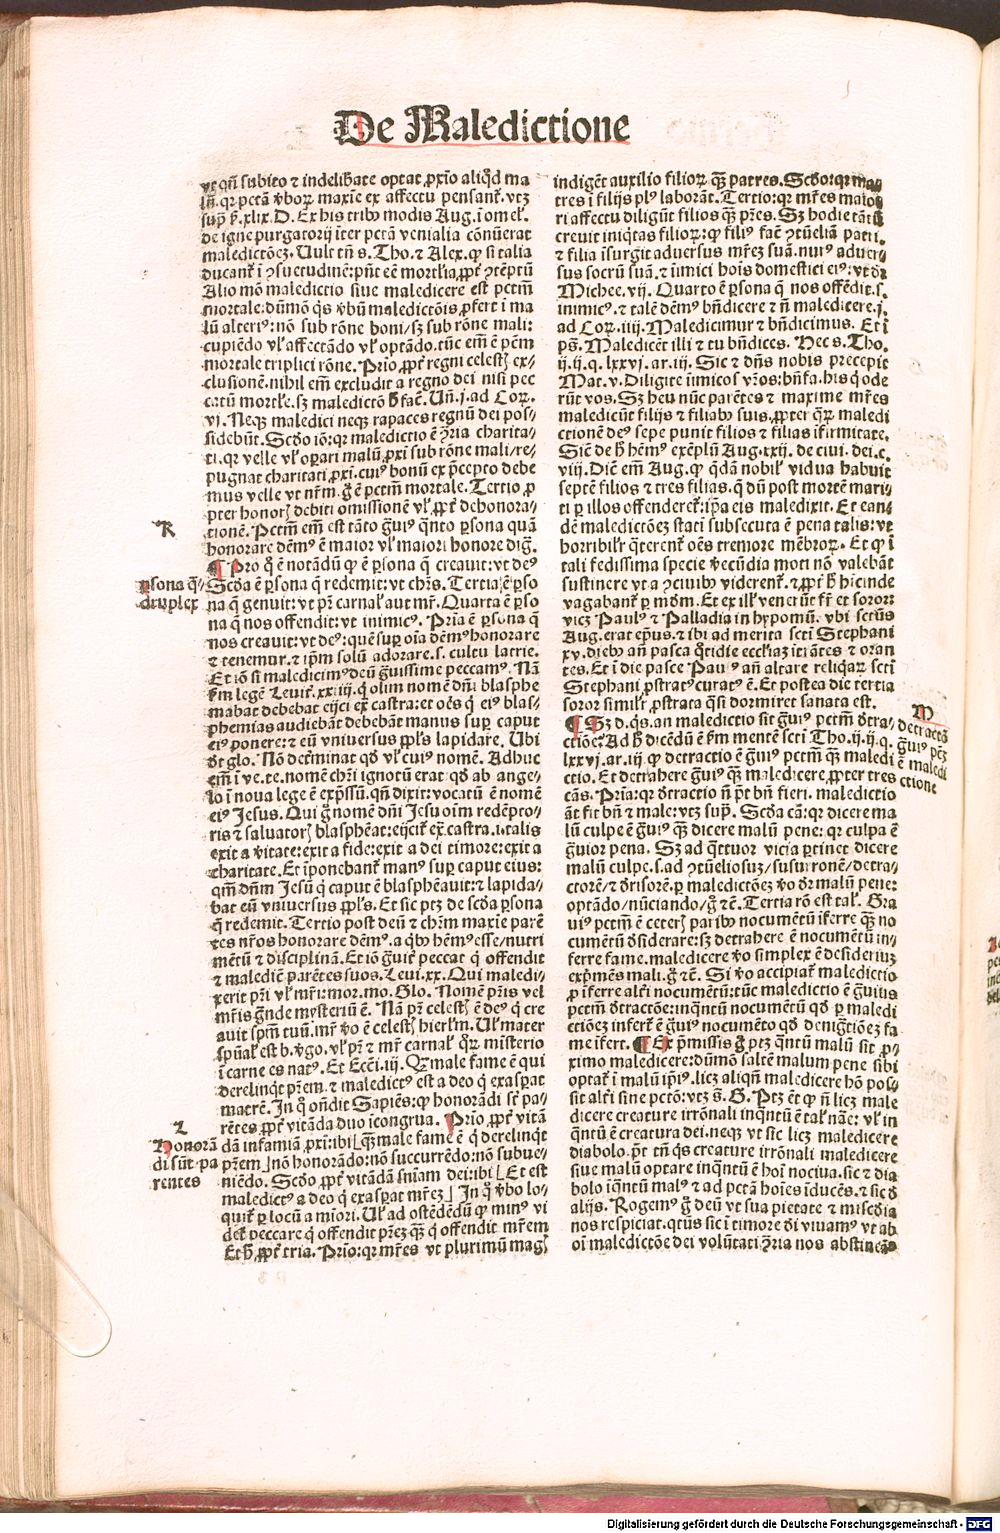 De Maledictione
vt qñ subito ⁊ indelibate optat ꝓxīo aliqd ma
lū. qꝛ petā vboꝝ maxīe ex affectu pensant᷑. vtꝫ
sup̄ p̄. xlix. D. Ex his tribꝰ modis Aug. ī omel᷑.
de igne purgatorij īter petā venialia cōnūerat
maledictōeꝫ. Uult tn̄ s. Tho. ⁊ Alex. ꝙ si talia
ducant᷑ ī ꝯsuetudinē: pn̄t eē mortl᷑ia, ꝓpt᷑ ꝯtēptū
Alio mō maledictio siue maledicere est pctm̄
mortale: dūmō qs vbū maledictōis ꝓfert ī ma
lū alteriꝰ: nō sub rōne boni/ sꝫ sub rōne mali:
cupiēdo vl᷑ affectādo vl᷑ optādo. tūc em̄ ē pēm
mortale triplici rōne. Prīo ꝓpt᷑ regni celestꝭ ex⸗
clusionē. nihil em̄ excludit a regno dei nisi pec
catū mortl᷑e. sꝫ maledictō h̄ fac̄. Uñ. j. ad Coꝝ.
vj. Neqꝫ maledici neqꝫ rapaces regnū dei pos⸗
sidebūt. Scdo iō: qꝛ maledictio ē ꝯria charita⸗
ti. qꝛ velle vl᷑ oꝑari malū ꝓxi sub rōne mali/ re⸗
pugnat charitati ꝓxi. cuiꝰ bonū ex p̄cepto debe
mus velle vt nr̄m. g̊ ē pctm̄ mortale. Tertio ꝓ
pter honorꝭ debiti omissionē vl᷑ ꝓpt᷑ dehonora⸗
tionē. Pctm̄ em̄ est tāto g̊uiꝰ q̄nto ꝑsona quā
honorare dēmꝰ ē maior vl᷑ maiori honore dig̊.
¶ Pro q̊ ē notādū ꝙ ē ꝑsona q̄ creauit: vt deꝰ
Scda ē ꝑsona q̄ redemit: vt chr̄s. Tertia ē ꝑso
na q̄ genuit: vt pr̄ carnal᷑ aut mr̄. Quarta ē ꝑso
na q̄ nos offendit: vt inimicꝰ. Prīa ē ꝑsona q̄
nos creauit: vt deꝰ: quē suꝑ oīa dēmꝰ honorare
⁊ tenemur. ⁊ ip̄m solū adorare. s. cultu latrie.
Et iō si maledicimꝰ deū g̊uissime peccamꝰ. Nā
km̄ legē Leuit᷑. xxiiij. q̄ olim nomē dn̄i blasphe
mabat debebat eijci ex castra: et oēs q̄ eiꝰ blas⸗
phemias audiebāt debebāt manus suꝑ caput
eiꝰ ponere: ⁊ eū vniuersus ppl᷑s lapidare. Ubi
dt glo. Nō det᷑minat qd vl᷑ cuiꝰ nomē. Adhuc
em̄ ī ve. te. nomē chr̄i ignotū erat qd ab ange⸗
lo ī noua lege ē exp̄ssū. qñ dixit: vocatū ē nomē
eiꝰ Jesus. Qui g̊ nomē dn̄i Jesu oīm redēpto⸗
ris ⁊ saluatorꝭ blasphēat: eijcit᷑ ex̄ castra. i. talis
exit a vitate: exit a fide: exit a dei timore: exit a
charitate. Et īponebant᷑ manꝰ suꝑ caput eius:
qm̄ dn̄m Jesū q̄ caput ē blasphēauit: ⁊ lapida⸗
bat eū vniuersus ppl᷑s. Et sic ptꝫ de scda ꝑsona
q̄ redemit. Tertio post deū ⁊ chr̄m maxīe parē
tes nr̄os honorare dēmꝰ. a qbꝰ hēmꝰ esse/ nutri
mētū ⁊ disciplinā. Et iō g̊uit᷑ peccat q̄ offendit
⁊ malediē parētes suos. Leui. xx. Qui maledi⸗
xerit pr̄i vl᷑ mr̄i: mor. mo. Glo. Nomē pr̄is vel
mr̄is g̊nde mysteriū ē. Nā pr̄ celestꝭ ē deꝰ q̄ cre
auit spm̄ tuū. mr̄ vo ē celestꝭ hierl᷑m. Ul᷑ mater
spūal᷑ est b. vgo. vl᷑ pr̄ ⁊ mr̄ carnal᷑ q̊ꝝ misterio
ī carne es natꝰ. Et Ecci. iij. Qꝫ male fame ē qui
derelinqt pr̄em. ⁊ maledictꝰ est a deo q̄ exasꝑat
matrē. In q̊ on̄dit Sapiēs: ꝙ honorādi sr̄ pa⸗
rētes ꝓpt᷑ vitāda duo īcongrua. Prīo ꝓpt᷑ vitā
dā infamiā ꝓxi: ibi [qꝫ male fame ē q̄ derelinqt
pr̄em] nō honorādo: nō succurrēdo: nō subue⸗
niēdo. Scdo ꝓpt᷑ vitādā sn̄iam dei: ibi [Et est
maledictꝰ a deo q̄ exasꝑat mr̄eꝫ] In q̊ vbo lo⸗
quit᷑ ꝑ locū a miori. Ul᷑ ad ostēdēdū ꝙ minꝰ vi
det᷑ peccare q̄ offendit pr̄eꝫ qꝫ q̄ offendit mr̄em
Et h̄ ꝓpt᷑ tria. Prīo: qꝛ mr̄es vt plurimū magꝭ
K
ꝑsona q̄⸗
druplex
L
Honorā
di sūt pa
rentes
indigēt auxilio filioꝝ qꝫ patres. Scdo: qꝛ ma
tres ī filijs plꝰ laborāt. Tertio: qꝛ mr̄es maio
ri affectu diligūt filios qꝫ pr̄es. Sꝫ hodie tātū
creuit iniqtas filioꝝ: ꝙ filiꝰ fac̄ ꝯtūeliā patri.
⁊ filia īsurgit aduersus mr̄eꝫ suā. nurꝰ aduer⸗
sus socrū suā. ⁊ īimici hoīs domestici eiꝰ: vt dr̄
Michee. vij. Quarto ē ꝑsona q̄ nos offendit. s.
inimicꝰ. ⁊ talē dēmꝰ bn̄dicere ⁊ n̄ maledicere. j.
ad Coꝝ. iiij. Maledicimur ⁊ bn̄dicimus. Et ī
ps̄. Maledicēt illi ⁊ tu bn̄dices. Hec s. Tho.
ij. ij. q. lxxvi. ar. iij. Sic ⁊ dn̄s nobis precepit
Mat. v. Diligite īimicos vr̄os: bn̄fa. his q̄ ode
rūt vos. Sꝫ heu nūc parētes ⁊ maxime mr̄es
maledicūt filijs ⁊ filiabꝰ suis. ꝓpter q̊ꝝ maledi
ctionē deꝰ sepe punit filios ⁊ filias īfirmitate.
Sic̄ de h̄ hēmꝰ exēplū Aug. xxij. de ciui. dei. c.
viij. Diē em̄ Aug. ꝙ q̄dā nobil᷑ vidua habuit
septē filios ⁊ tres filias. q̄ dū post mortē mari⸗
ti ꝑ illos offenderet᷑: ip̄a eis maledixit. Et ean⸗
dē maledictōeꝫ stati subsecuta ē pena talis: vt
horribilr̄ q̄terent᷑ oēs tremore mēbroꝝ. Et ꝙ ī
tali fedissima specie vecūdia moti nō valebāt
sustinere vt a ꝯciuibꝰ viderent᷑. ⁊ ꝓpt᷑ h̄ hicinde
vagabant᷑ ꝑ mdm. Et ex ill᷑ venerūt fr̄ et soror:
vicꝫ Paulꝰ ⁊ Palladia in hypomū. vbi sctūs
Aug. erat ep̄us. ⁊ ibi ad merita scti Stephani
xv. diebꝰ an̄ pasca q̊tidie eccl᷑iaꝫ itrātes ⁊ oran
tes. Et ī die pasce Pauꝰ an̄ altare reliqaꝝ scti
Stephani ꝓstratꝰ curatꝰ ē. Et postea die tertia
soror similr̄ ꝓstrata q̄si dormiret sanata est.
¶ Sꝫ d. q̄s. an maledictio sit g̊uiꝰ pctm̄ dtra⸗
ctiōe: Ad h̄ dicēdū ē km̄ mentē scti Tho. ij. ij. q.
lxxvj. ar. iiij. ꝙ detractio ē g̊uiꝰ pctm̄ qꝫ maledi
ctio. Et detrahere g̊uiꝰ qꝫ maledicere ꝓpter tres
cās. Prīa: qꝛ dtractio n̄ pt̄ bn̄ fieri. maledictio
āt fit bn̄ ⁊ male: vtꝫ sup̄. Scda cā: qꝛ dicere ma
lū culpe ē g̊uiꝰ qꝫ dicere malū pene: qꝛ culpa ē
g̊uior pena. Sꝫ ad q̄ttuor vicia ꝑtinet dicere
malū culpe. s. ad ꝯtūeliosuꝫ/ susurronē/ detra⸗
ctorē/ ⁊ drisorē. ꝑ maledictōeꝫ vo dr̄ malū pene:
optādo/ nūciando/ g̊ ⁊c̄. Tertia rō est tal᷑. Gra
uiꝰ pctm̄ ē ceterꝭ paribꝰ nocumētū īferre qꝫ no
cumētū dsiderare: sꝫ detrahere ē nocumētū in⸗
ferre fame. maledicere vo simplex ē desideriuꝫ
exp̄mēs mali. g̊ ⁊c̄. Si vo accipiat᷑ maledictio
ꝓ īferre alt᷑i nocumētū: tūc maledictio ē g̊uius
pctm̄ dtractōe: inq̄ntū nocumētū qd ꝑ maledi
ctiōeꝫ infert᷑ ē g̊uiꝰ nocumēto qd denigtiōeꝫ fa
me ifert. ¶ Ex p̄missis g̊ ptꝫ q̄ntū malū sit ꝓ⸗
ximo maledicere: dūmō saltē malum pene sibi
optat᷑ ī malū ip̄iꝰ. licꝫ aliqn̄ maledicere hō pos⸗
sit alt᷑i sine pctō: vtꝫ s̄. G. Ptꝫ ēt ꝙ n̄ licꝫ male
dicere creature irrōnali inq̄ntū ē tal᷑ nāe: vl᷑ in
q̄ntū ē creatura dei. neqꝫ vt sic licꝫ maledicere
diabolo. pt̄ tn̄ q̄s creature irrōnali maledicere
siue malū optare inq̄ntū ē hoī nociua. sic ⁊ dia
bolo īq̄ntū malꝰ ⁊ ad pctā hoīes īducēs. ⁊ sic d
alijs. Rogemꝰ g̊ deū vt sua pietate ⁊ mīscdia
nos respiciat. q̄tꝰ sic ī timore dī viuamꝰ vt ab
oī maledictōe dei volūtati ꝯria nos abstineā
M
detractā
g̊uiꝰ pēꝫ
ē maledi
ctione
Digitalisierung gefördert durch die Deutsche Forschungsgemeinschaft - DFG